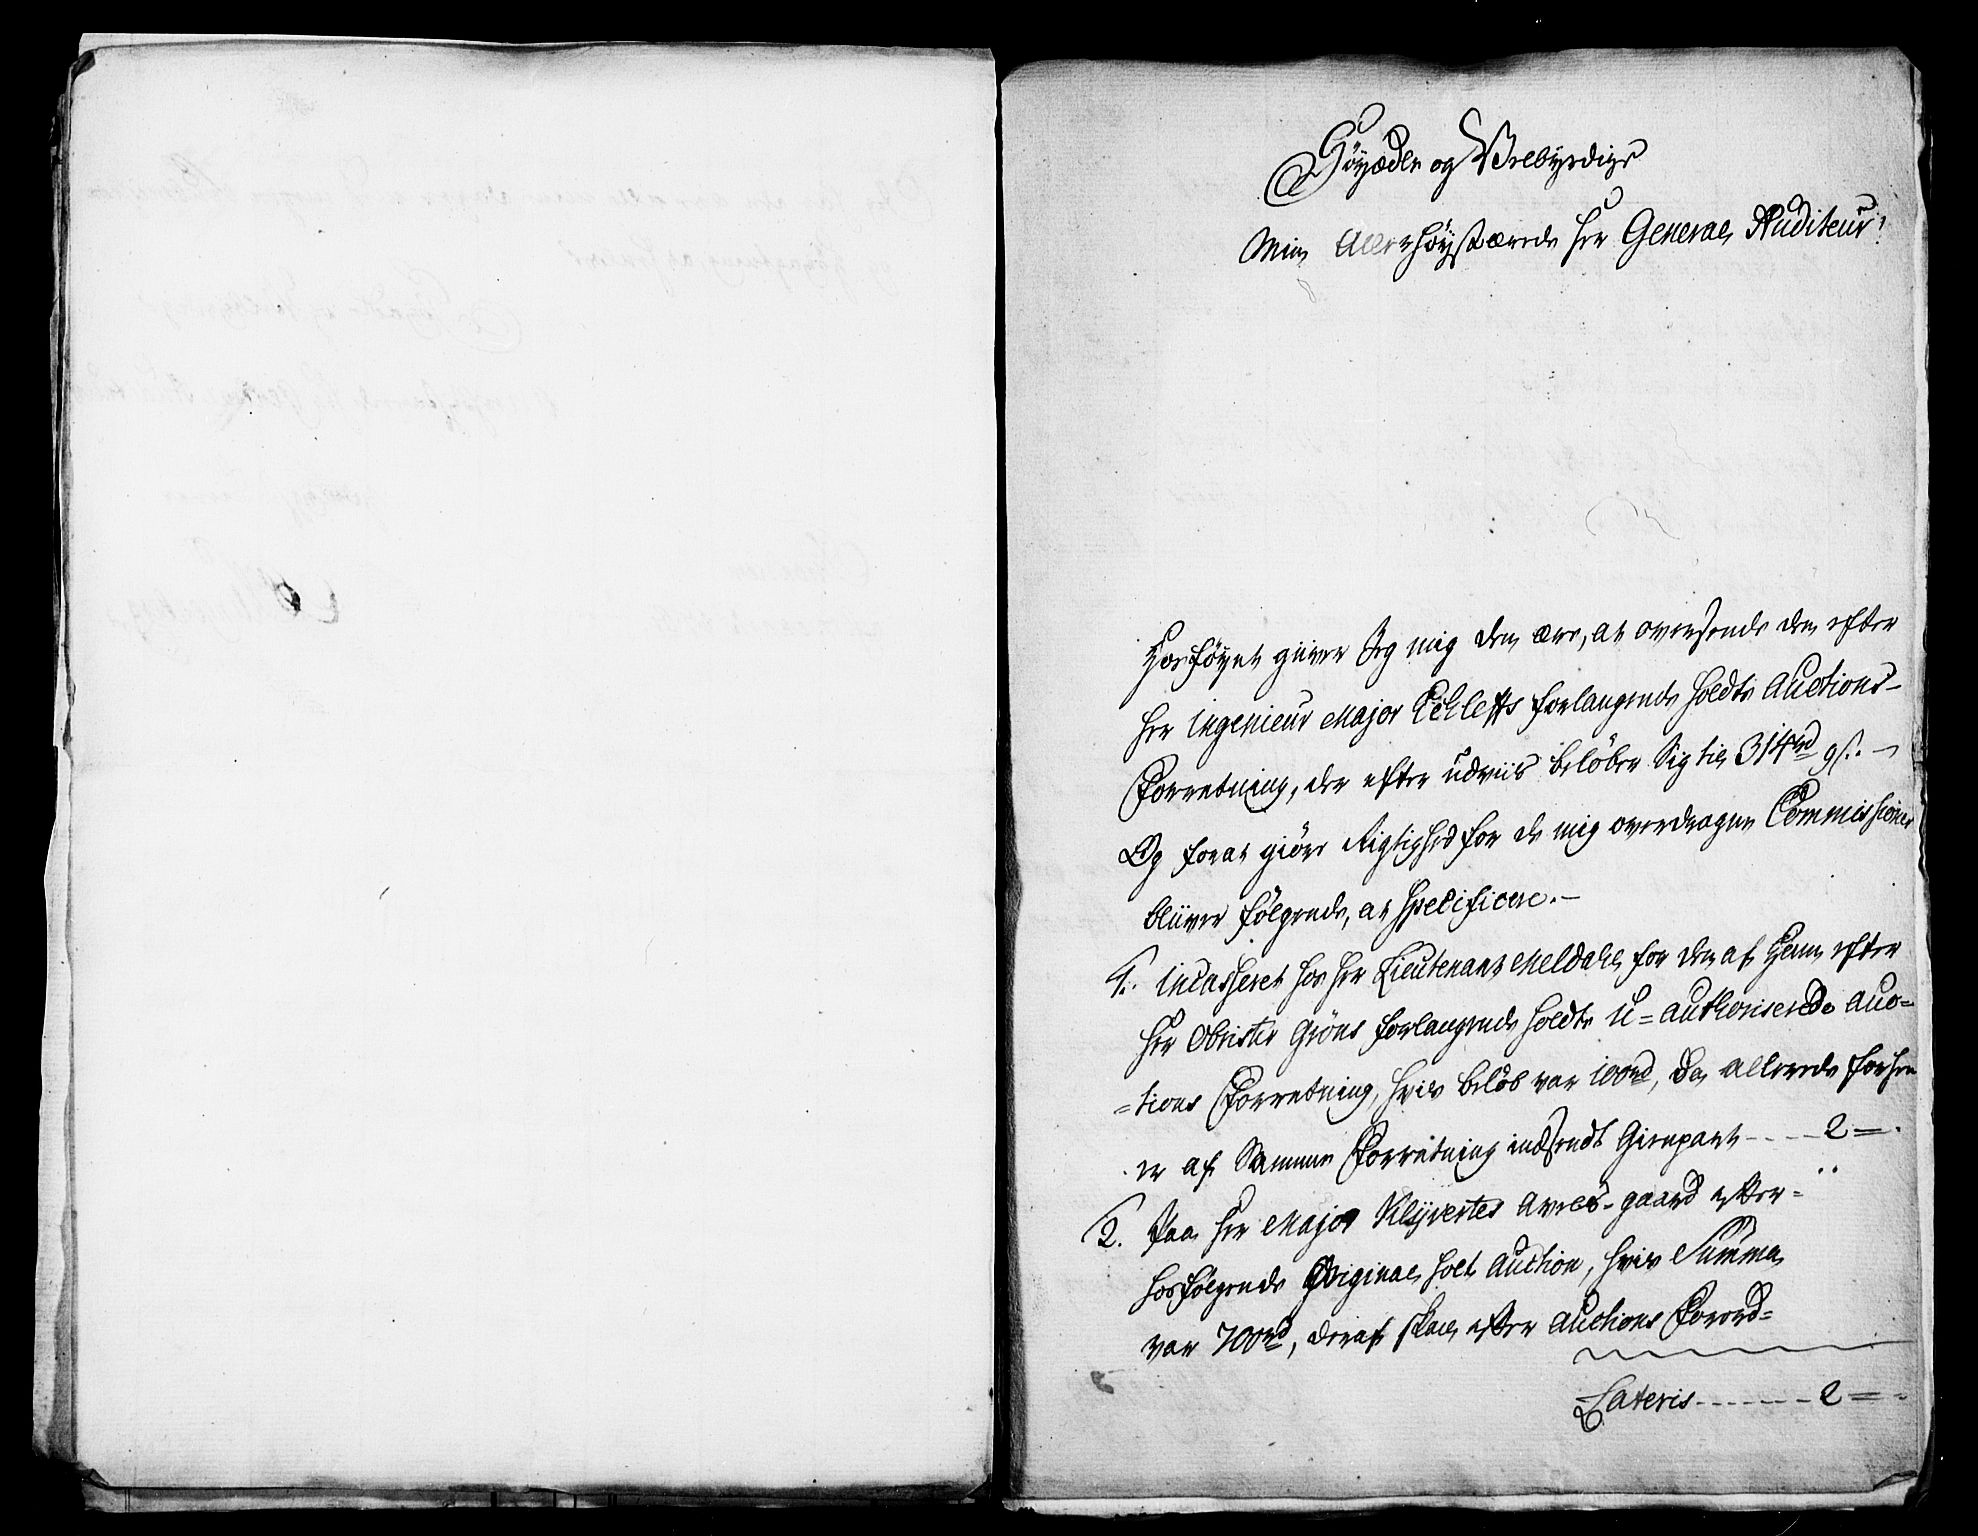 Høyædle og Velbyrdige
Min Allerhøystærede Hr General Auditeur!
Hosføyet giver Jeg mig den ære, at oversende den efter
Hr Ingenieur Major forlangende holdte Auctions-
Forretning, der efter udviis beløber Sig til 314rd 9s.
Og for at giøre Rigtighed for de mig overdragne Commissioner
bliiver følgende, at specificere.
1. incasseret hos Hr Lieutenant Meldahl for den af Ham efter
Hr Obrister Grøns forlangende holdte U=authoriserede Auc=
=tions Forretning, hvis beløb var 100rd, da allerede forhen
er af Samme Forretning indsendt Gienpart ---- 2 =
2. Paa Hr Major Klyvertes avels-gaard efter=
hosfølgende Original holt Auction, hvis Summa
var 700rd, deraf skal efter Auctions Forord=
Lateris ------- 2 =